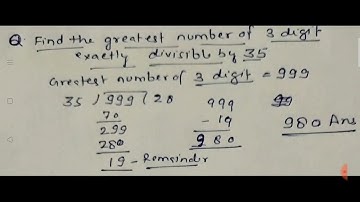 Q. Find the greatest number of 3 digit
exactly divisibl by 35
Greatest number of 3 digit = 999
35 ) 999 ( 28
70
299
280
19 - Remaindr
999
- 19
980
99
980 Ans